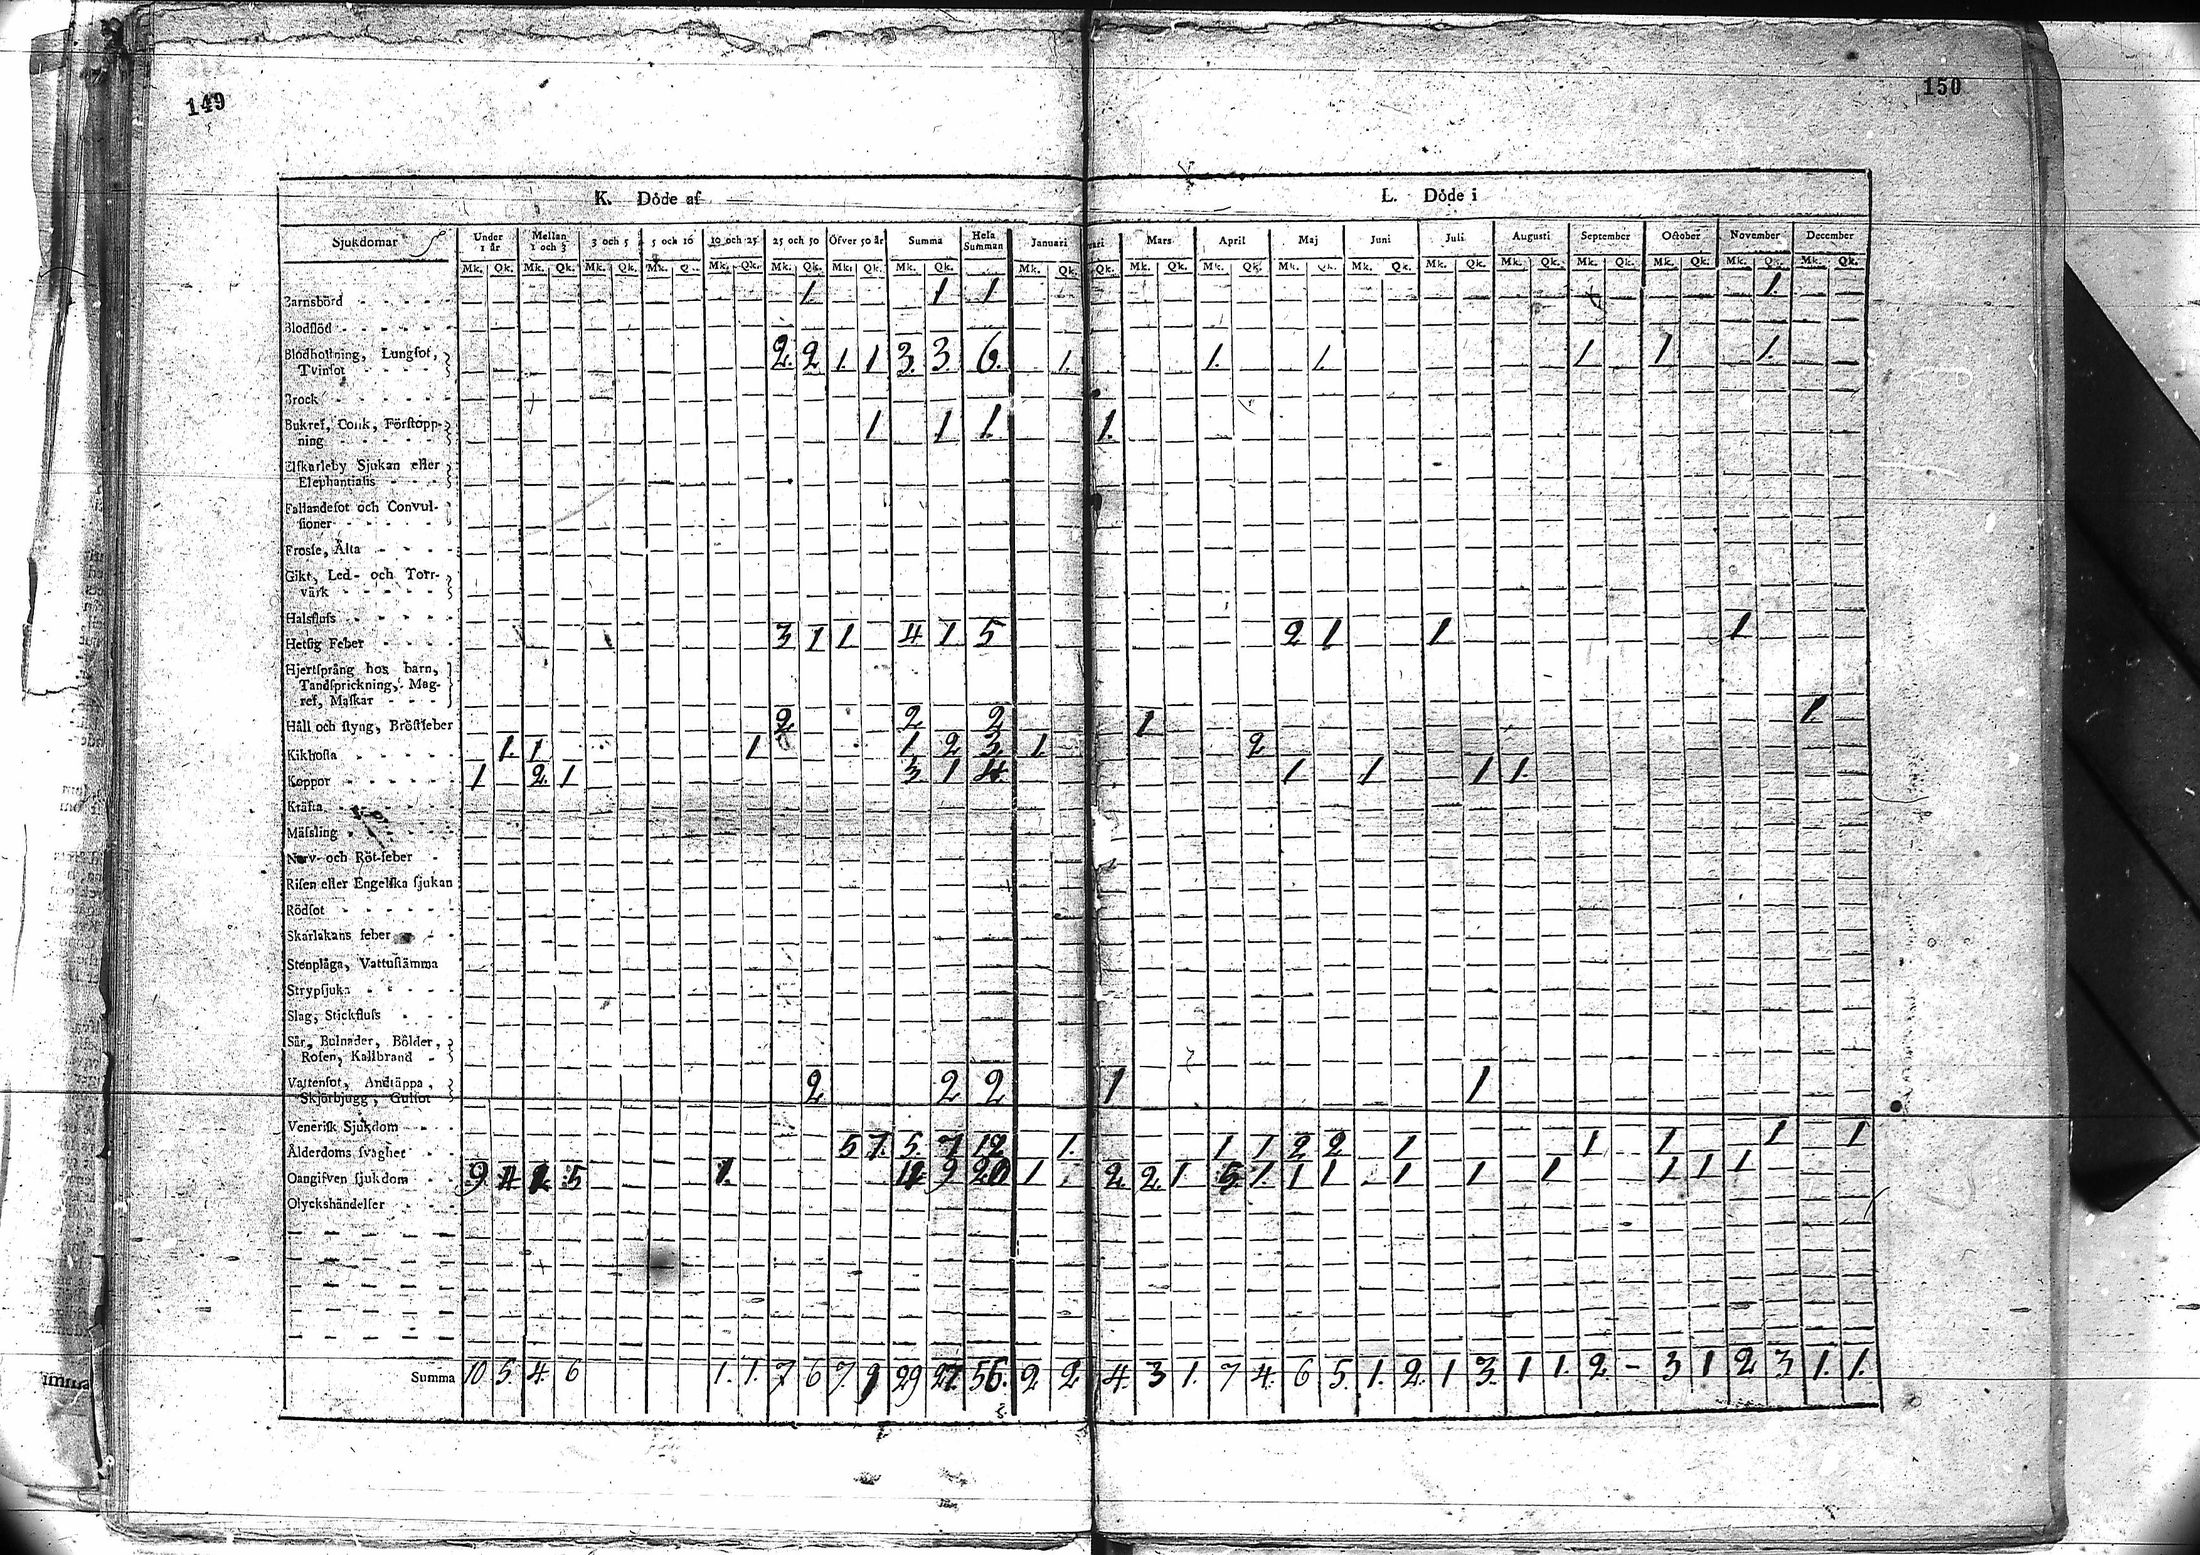 149
150
K. Döde af
L. Döde i
Sjukdomar Under 1 år Mellan 1 och 3 3 och 5 5 och 10 10 och 25 25 och 50 Öfver 50 år Summa Hela Summan Januari vari Mars April Maj Juni Juli Augusti September October November December
Mk. Qk. Mk. Qk. Mk. Qk. Mk. Q.. Mk. Qk. Mk. Qk. Mk. Qk. Mk. Qk. Mk. Qk. Qk. Mk. Qk. Mk. Qk. Mk. Qk. Mk. Qk. Mk. Qk. Mk. Qk. Mk. Qk. Mk. Qk. Mk. Qk. Mk. Qk.
Barnsbörd - - - - - 1 1 1 1
Blodflöd - - - - -
Blodhostning, Lungsot,
Tvinsot - - - - 2 2 1 1 3 3 6 1 1 1 1 1 1
Brock - - - - -
Bukref, Colik, Förstopp-
ning - - - - - 1 1 1 1
Elfkarleby Sjukan eller
Elephantiasis - - -
Fallandesot och Convul-
sioner - - - - -
Frosse, Älta - - - -
Gikt, Led- och Torr-
värk - - - - -
Halsfluss - - - - -
Hetsig Feber - - - - 3 1 1 4 1 5 2 1 1 1
Hjertsprång hos barn,
Tandsprickning, Mag-
ref, Maskar - - -
Håll och styng, Bröstfeber 2 2 2 1 1
Kikhosta - - - - - 1 1 1 1 2 3 1 2
Koppor - - - - - 1 2 1 3 1 4 1 1 1 1
Kräfta - - - - -
Mässling - - - - -
Nerv- och Röt-feber -
Risen eller Engelska sjukan
Rödsot - - - - -
Skarlakans feber - -
Stenplåga, Vattustämma
Strypsjuka - - - -
Slag, Stickfluss - - -
Sår, Bulnader, Bölder,
Rosen, Kallbrand -
Vattensot, Andtäppa,
Skjörbjugg, Gulsot 2 2 2 1 1
Venerisk Sjukdom - -
Ålderdoms svaghet - - 5 7 5 7 12 1 1 1 2 2 1 1 1 1 1
Oangifven sjukdom - - 9 4 2 5 1 11 9 20 1 2 2 1 5 1 1 1 1 1 1 1 1 1
Olyckshändelser - - -
Summa 10 5 4 6 1 1 7 6 7 9 29 27 56 2 2 4 3 1 7 4 6 5 1 2 1 3 1 1 2 - 3 1 2 3 1 1